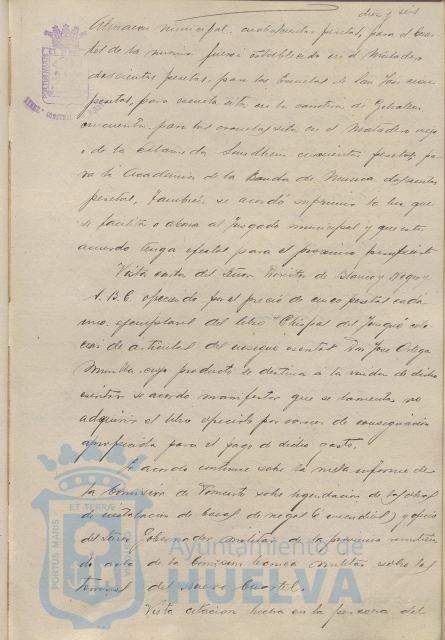 diez y seis
municipal, cuatrocientas pesetas, para el Cuar-
tel de la misma fuerza establecido en el Matadero
doscientas pesetas, para las Escuelas de San José cien
pesetas, para escuela sita en la carretera de Gibraleón
cincuenta, para las escuelas sita en el Matadero viejo
de la Alameda Sundheim cincuenta pesetas, pa-
ra la Academia de la Banda de Música doscientas
pesetas. También se acordó suprimir la luz que
se facilita o abona al Juzgado municipal y que este
acuerdo tenga efectos para el próximo presupuesto
Vista carta del Señor Director de Blanco y Negro y
A.B.C. ofreciendo por el precio de cinco pesetas cada
uno, ejemplares del libro "Chispas del Yunque" colec-
ción de artículos del insigne escritor Don José Ortega
Munilla, cuyo producto se destina a la viuda de dicho
escritor se acordó manifestar que se lamenta no
adquirir el libro ofrecido por carecer de consignación
apropiada para el pago de dicho gasto.
Se acordó continúe sobre la mesa informe de
la Comisión de Fomento sobre liquidación de
de instalación de bocas de riegos e incendios y oficio
del Señor Gobernador militar de la provincia remitien-
do acta de la Comisión técnica militar sobre los
terrenos del nuevo Cuartel.
Vista citación hecha en la persona del
PORTUS MARIS ET TERRE
Ayuntamiento de
HUELVA